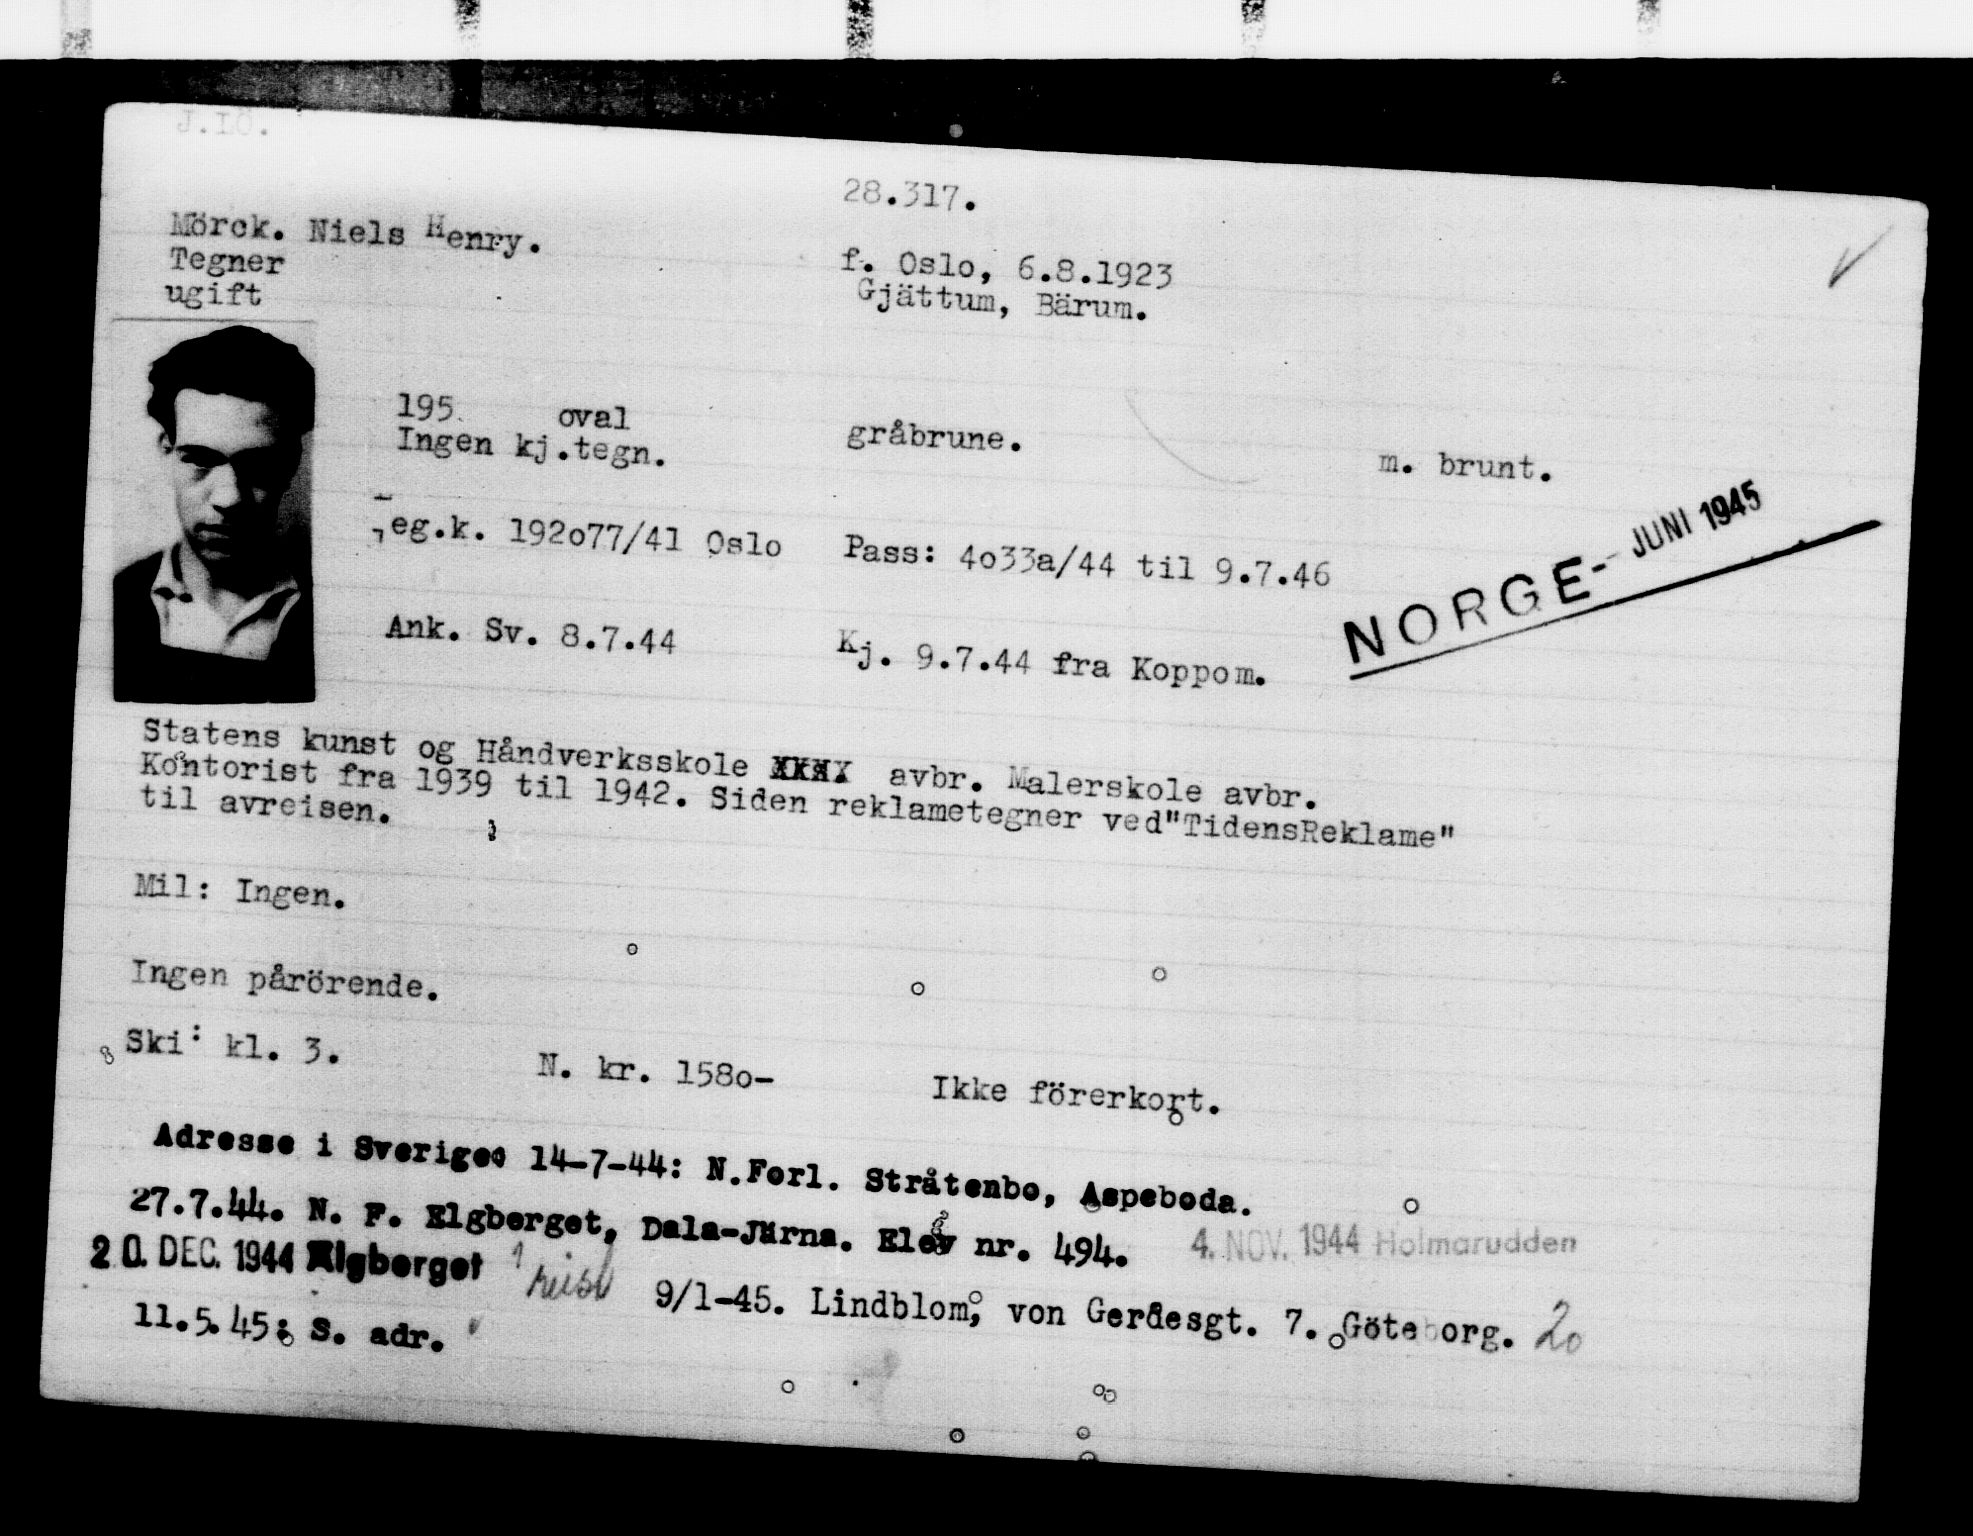 J.LÖ.
28.317.
Mörck. Niels Henry.
Tegner
ugift
f. Oslo, 6.8.1923
Gjättum, Bärum.
195. oval gråbrune. m. brunt.
Ingen kj.tegn.
eg.k. 192o77/41 Oslo Pass: 4o33a/44 til 9.7.46
NORGE- JUNI 1945
Ank. Sv. 8.7.44 Kj. 9.7.44 fra Koppom.
Statens kunst og Håndverksskole avbr. Malerskole avbr.
Kontorist fra 1939 til 1942. Siden reklametegner ved"TidensReklame"
til avreisen.
Mil: Ingen.
Ingen pårörende.
Ski: kl. 3. N. kr. 158o- Ikke förerkort.
Adresse i Sverige 14-7-44: N.Forl. Stråtenbo, Aspeboda.
27.7.44. N. F. Elgberget, Dala-Järna. Elev nr. 494. 4. NOV. 1944 Holmarudden
20. DEC. 1944 Älgberget reist 9/1-45. Lindblom, von Gerdesgt. 7. Göteborg. 20
11.5.45: S. adr.